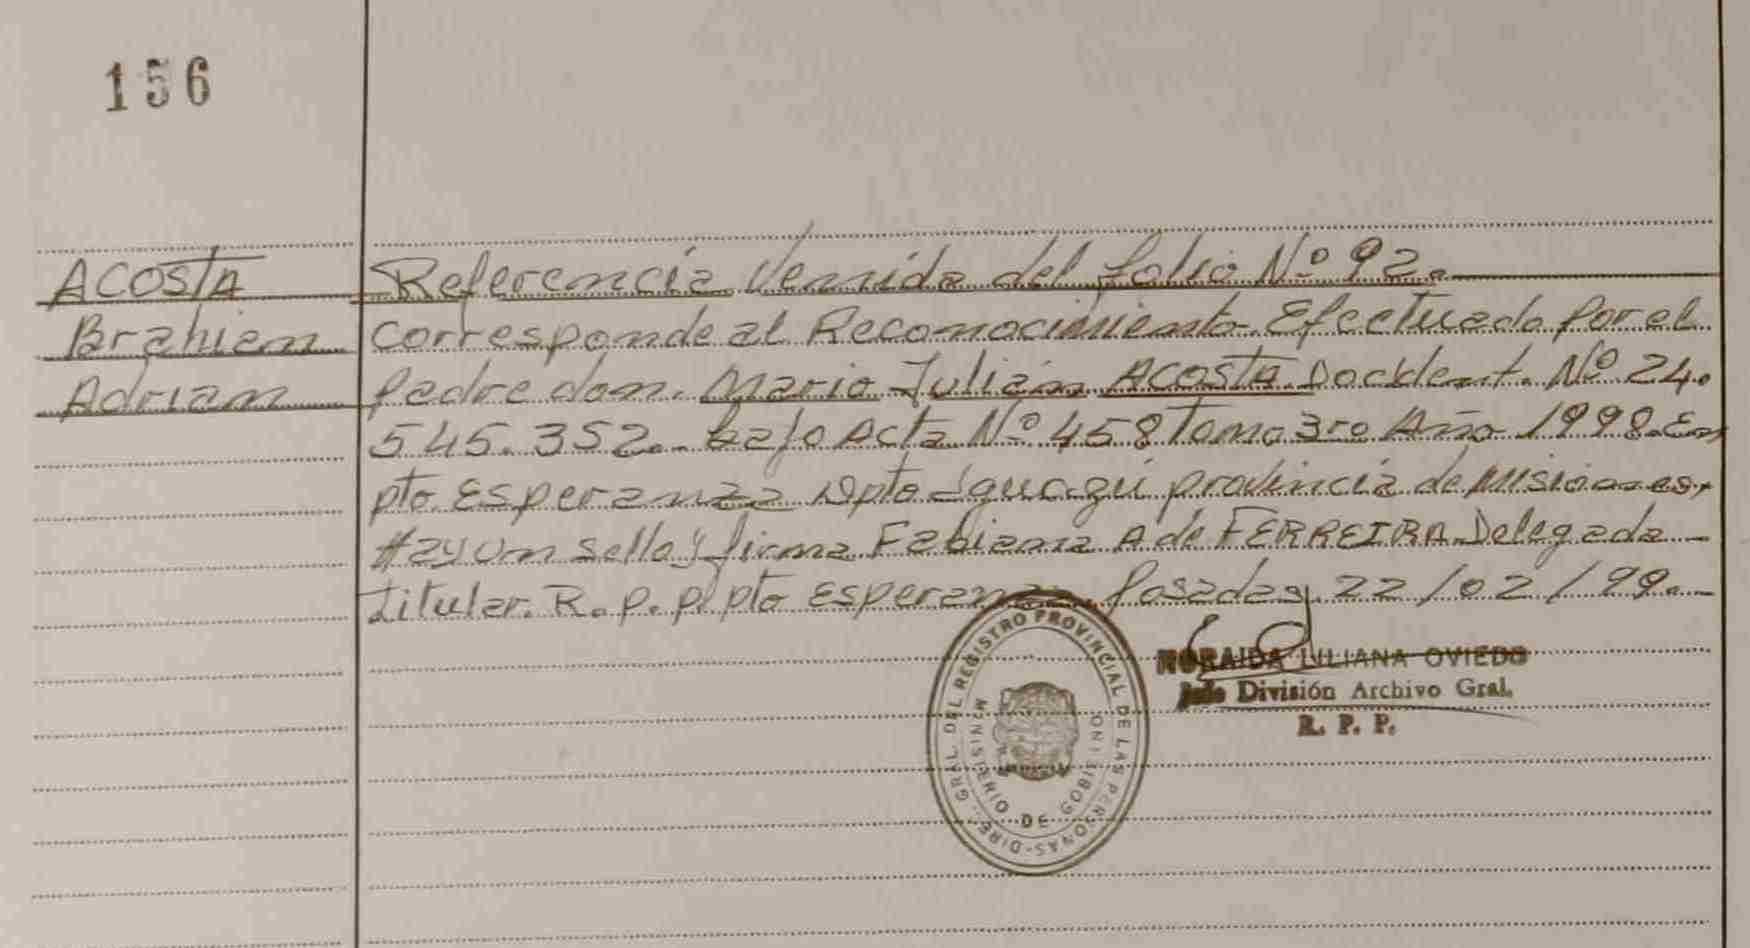 156
ACOSTA
Brahian
Adrian
Referencia Venida del folio Nº 92.
corresponde al Reconocimiento Efectuado por el
padre don. Mario Julián ACOSTA Doc Ident. Nº 24.
545.352.- bajo Acta Nº 458 Tomo 3ro Año 1998. En
pto Esperanza Dpto Iguazú provincia de Misiones,
Hay un sello y firma Fabiana A de FERREIRA Delegada -
titular. R. p. p. pto Esperanza. Posadas, 22/02/99.-
DIRE. GRAL. DEL REGISTRO PROVINCIAL DE LAS PERSONAS-
MINISTERIO DE GOBIERNO
NORAIDA LILIANA OVIEDO
Jefe División Archivo Gral.
R. P. P.